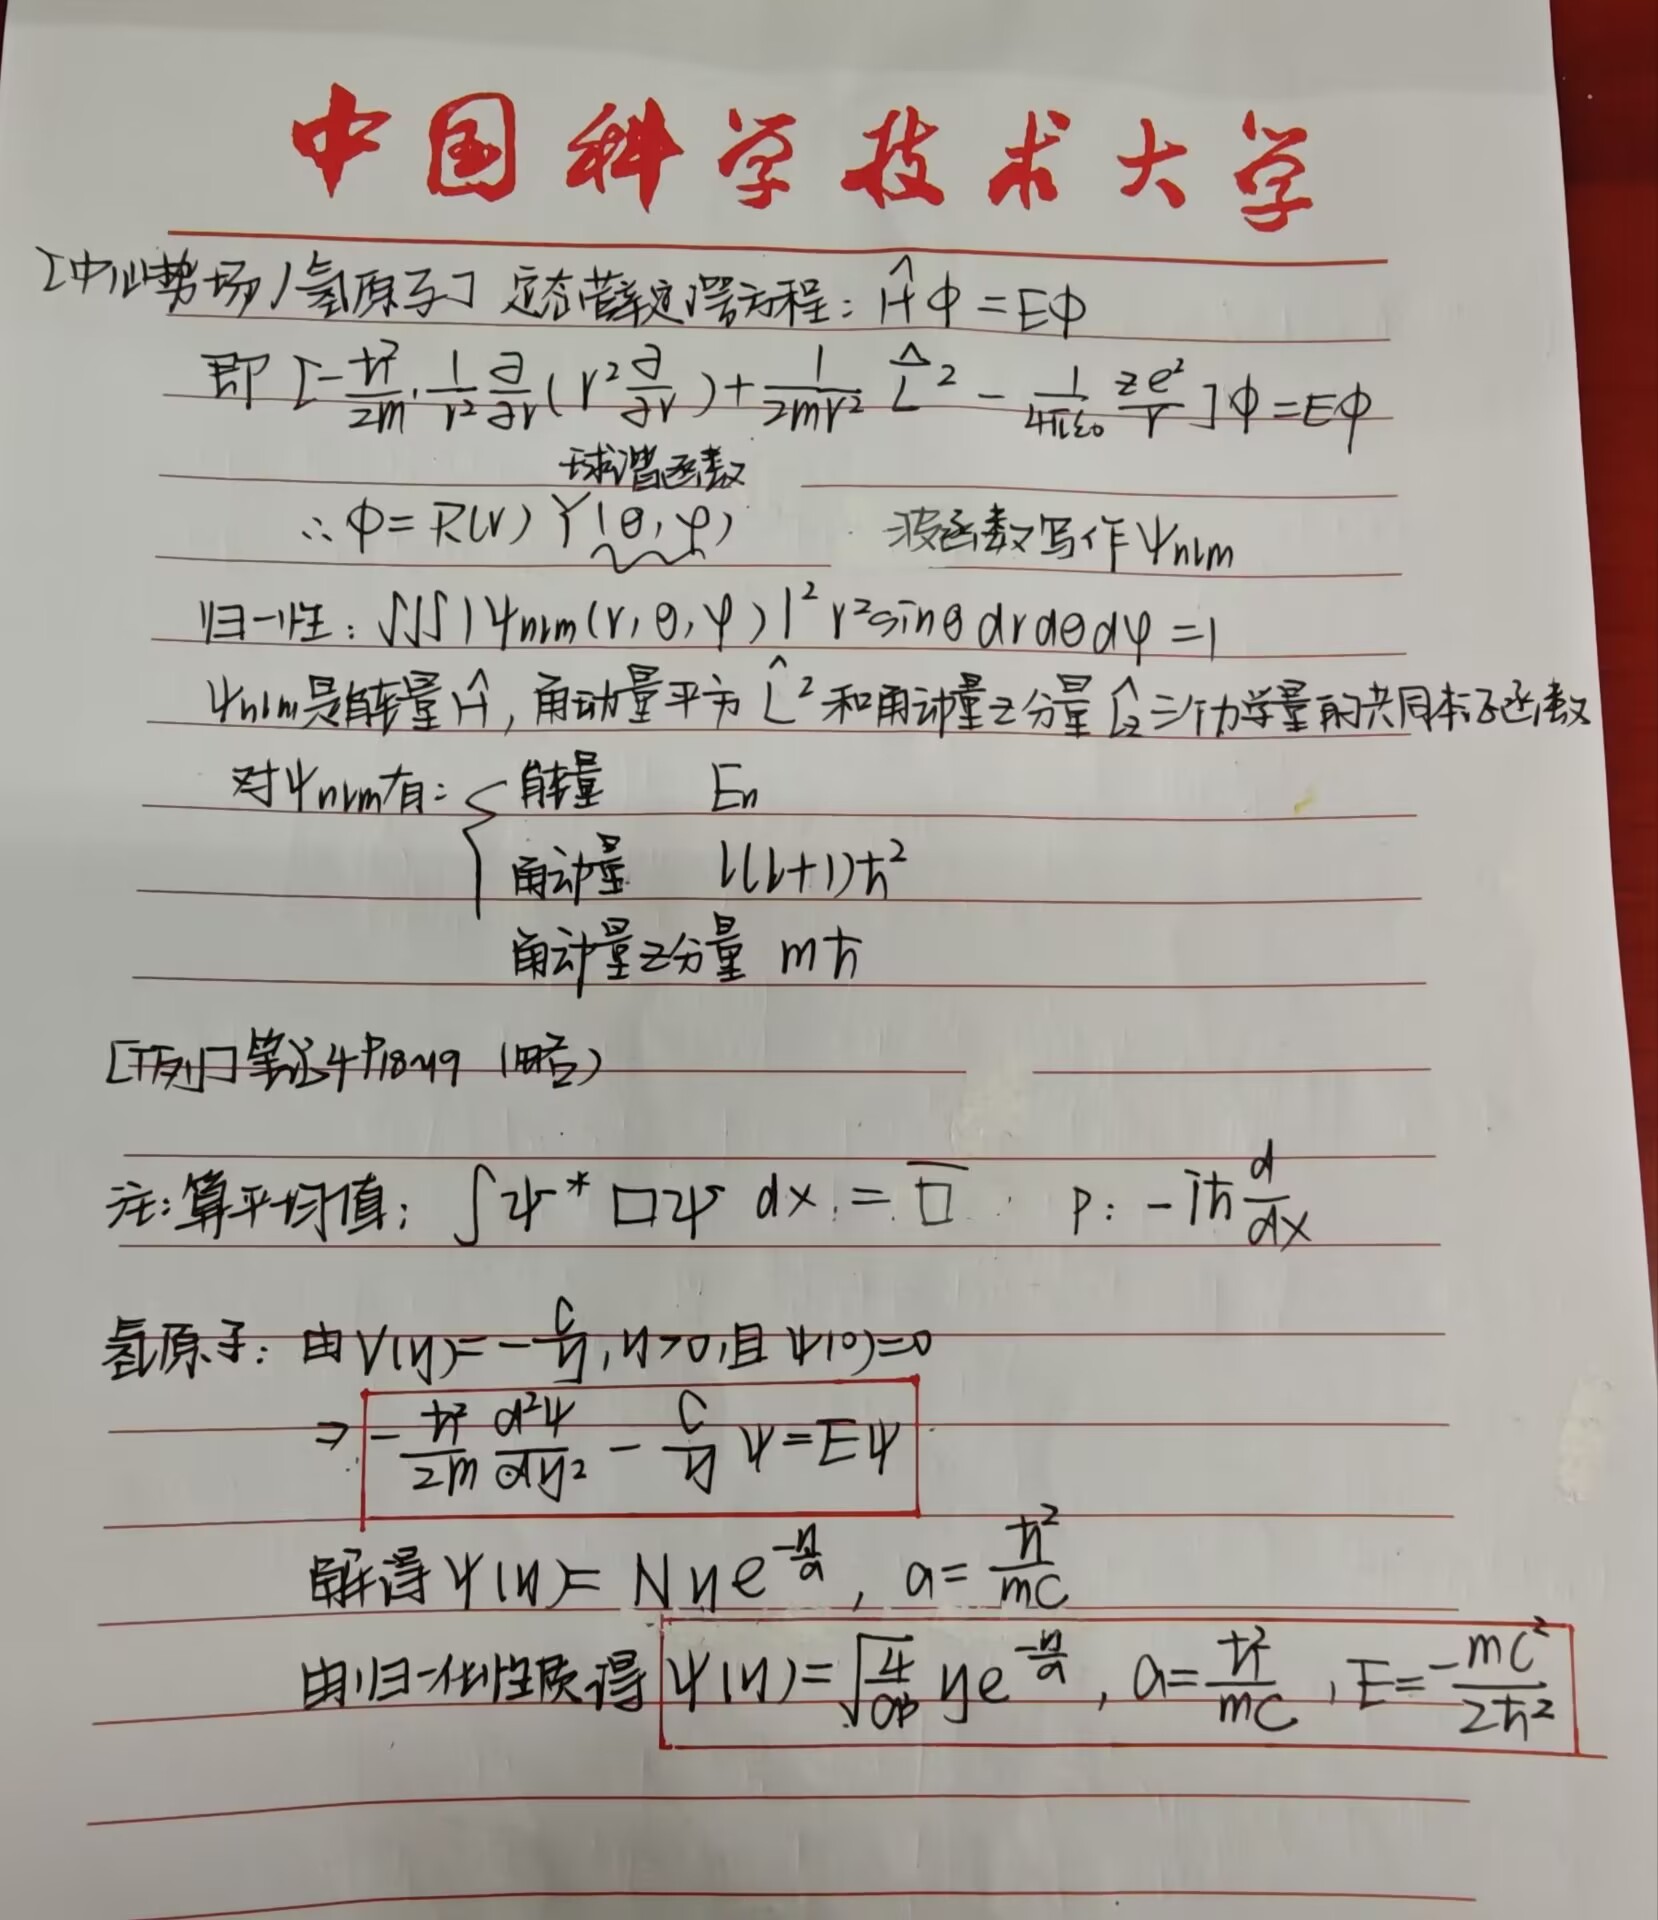 中国科学技术大学
[中心势场/氢原子] 定态薛定谔方程: ĤΦ=EΦ
即 [-ħ²/2m·1/r² ∂/∂r(r²∂/∂r)+1/2mr² L̂² - 1/4πε₀ ze²/r]Φ=EΦ
球谐函数
∴Φ=R(r)Y(θ,φ) 波函数写作ψnlm
归一性: ∫∫∫|ψnlm(r,θ,φ)|²r²sinθdrdθdφ=1
ψnlm是能量Ĥ,角动量平方L̂²和角动量z分量L̂z三个力学量的共同本征函数
对ψnlm有: { 能量 En
角动量 l(l+1)ħ²
角动量z分量 mħ
[下列]笔记4P18~19 (略)
注: 算平均值: ∫ψ*□ψ dx = □̅ p: -iħ d/dx
氢原子: 由V(y)=-C/y, y>0,且ψ(0)=0
⇒ -ħ²/2m d²ψ/dy² - C/y ψ=Eψ
解得ψ(y)=Nye^(-y/a), a=ħ²/mC
由归一化性质得 ψ(y)=√(4/a³) ye^(-y/a), a=ħ²/mC, E=-mC²/2ħ²